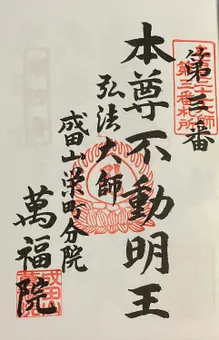 第三番
本尊不動明王
弘法大師
成田山栄町分院
萬福院
第三番札所